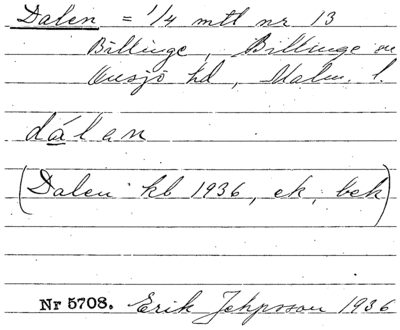 Dalen = 1/4 mtl nr 13
Billinge, Billinge sn
Onsjö hd, Malm. l.
dálan
(Dalen kb 1936, ek, bek)
Nr 5708. Erik Jeppsson 1936